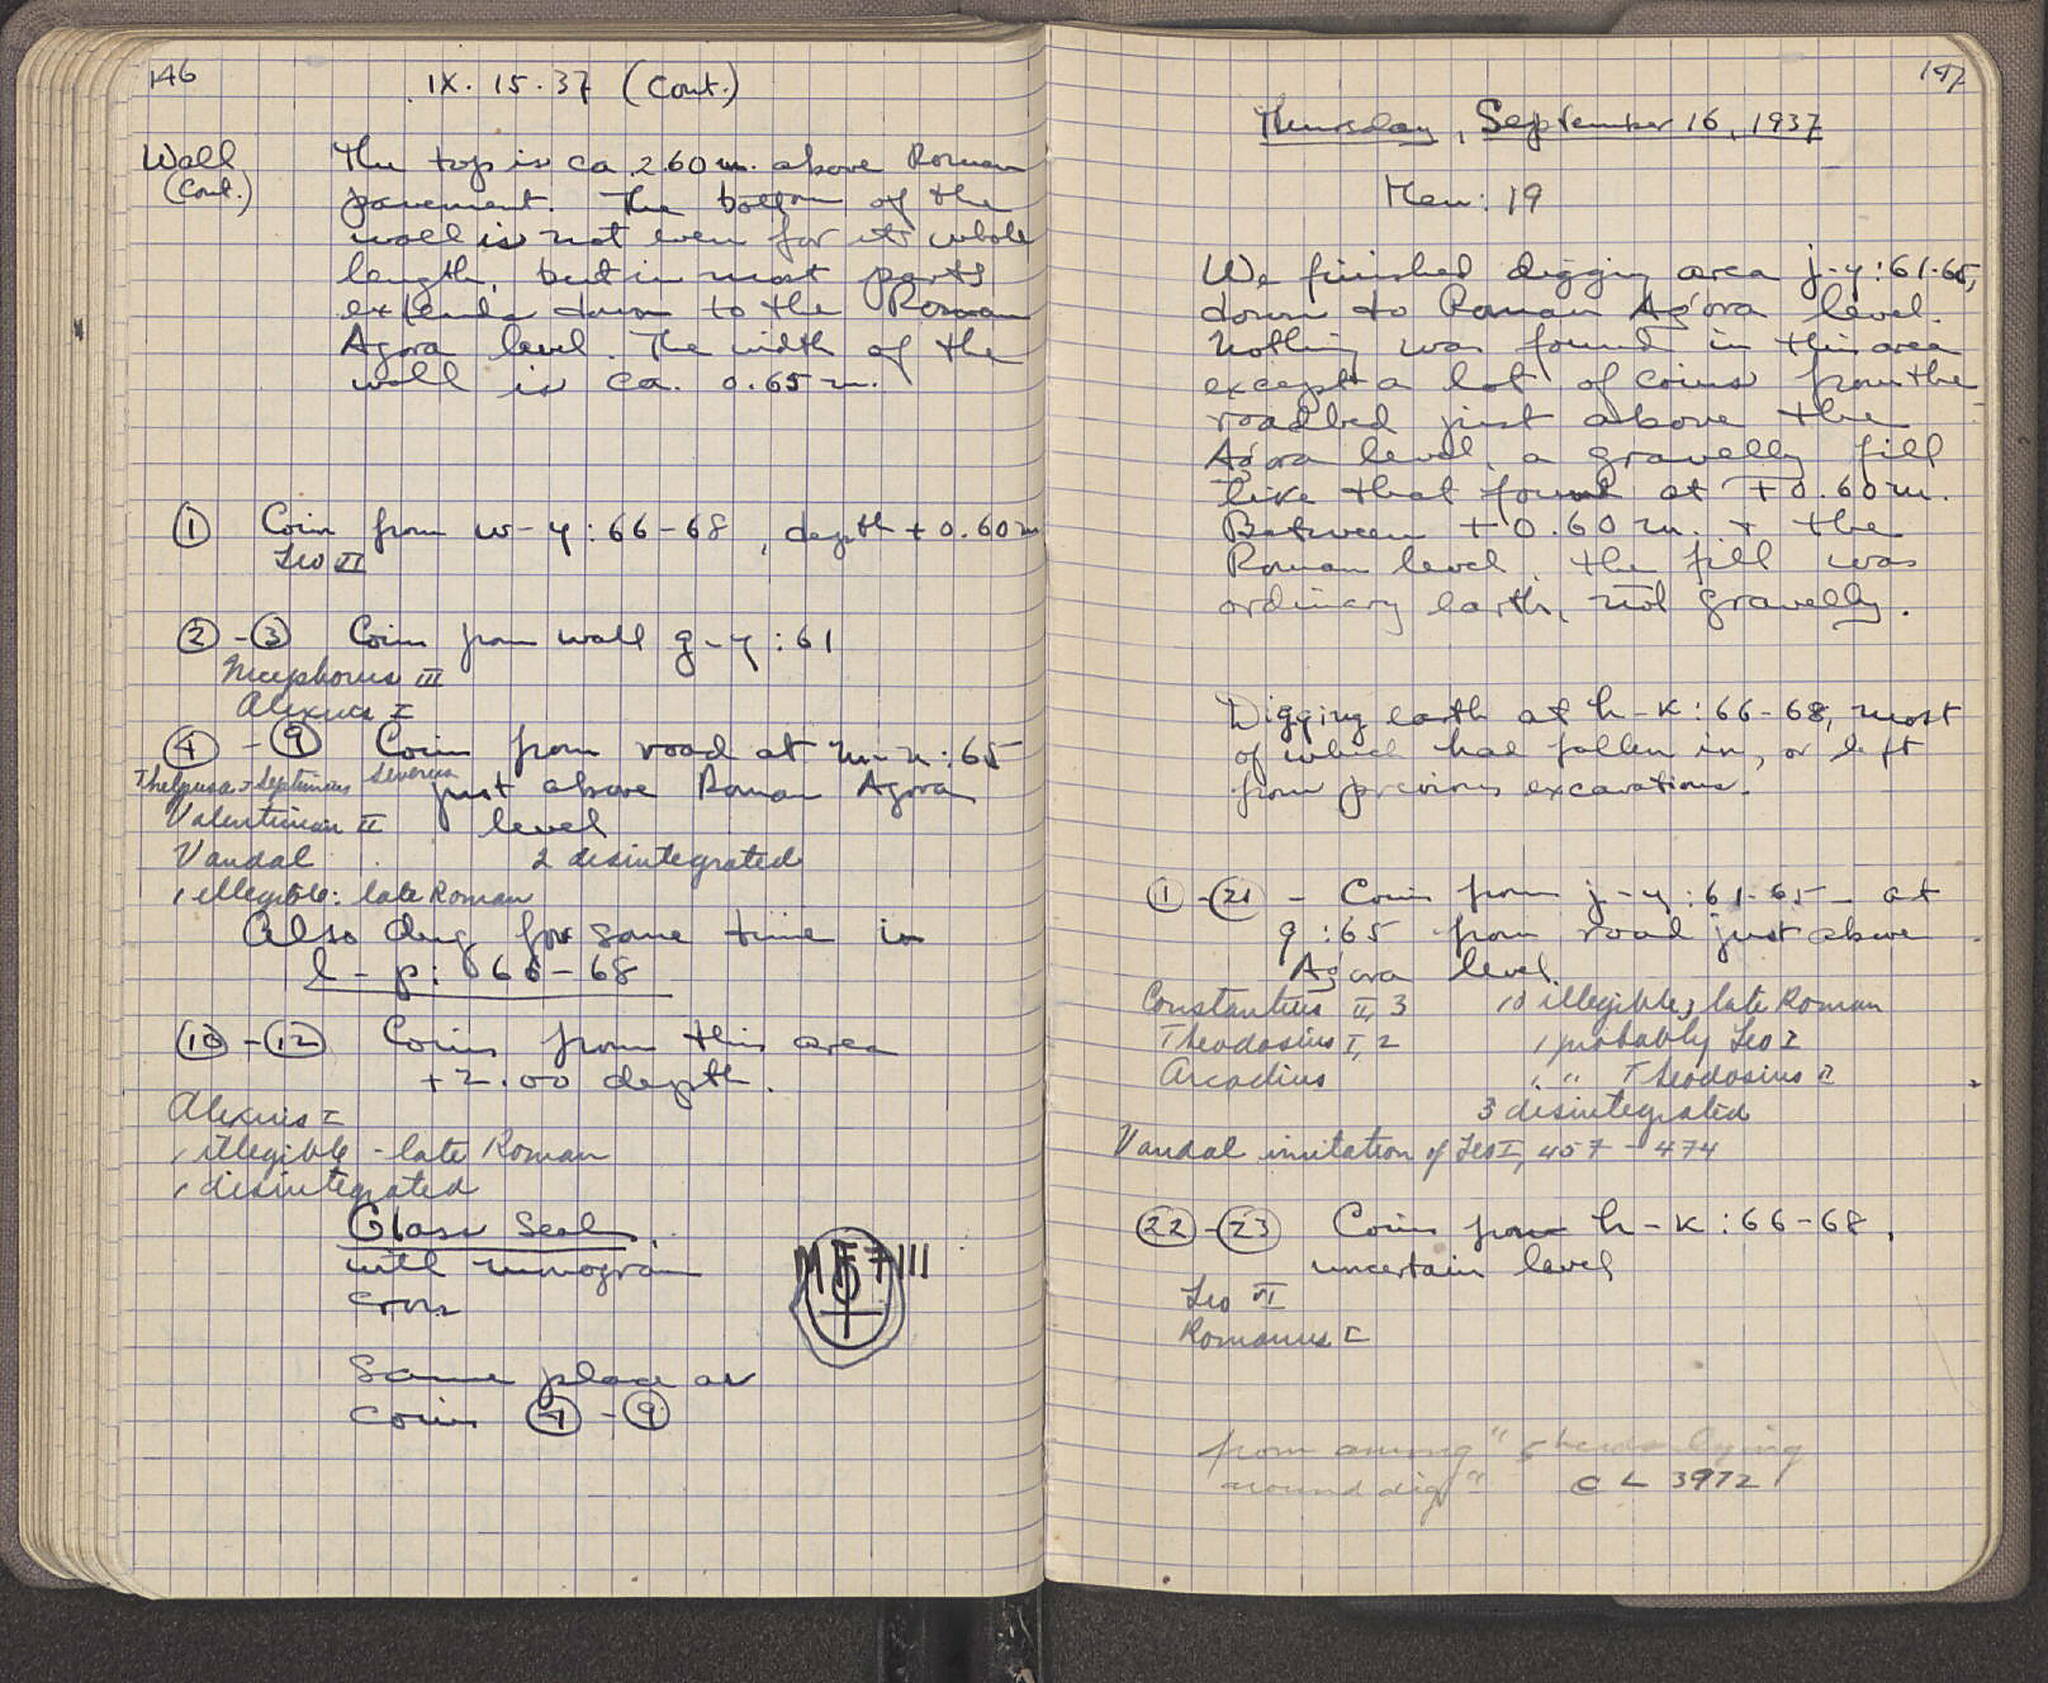 146
IX. 15. 37 (Cont.)
Wall
(Cont.)
The top is ca 2.60 m. above Roman
pavement. The bottom of the
wall is not even for its whole
length, but in most parts
extends down to the Roman
Agora level. The width of the
wall is ca. 0.65 m.
① Coin from w-y:66-68, depth +0.60 m
Leo VI
②-③ Coins from wall g-y:61
Nicephorus III
Alexius I
④-⑨ Coins from road at m-n:65
Thelpusa - Septimius Severus
just above Roman Agora
Valentinian II level
Vandal 2 disintegrated
1 illegible: late Roman
Also dug for some time in
l-p: 66-68
⑩-⑫ Coins from this area
+2.00 depth.
Alexius I
1 illegible - late Roman
1 disintegrated
Glass Seal,
with monogram
cross
MF 7111
Same place as
coins ④-⑨
147
Thursday, September 16, 1937
Men: 19
We finished digging area j-y:61-65,
down to Roman Agora level.
Nothing was found in this area
except a lot of coins from the
roadbed just above the
Agora level, a gravelly fill
like that found at +0.60 m.
Between +0.60 m. + the
Roman level, the fill was
ordinary earth, not gravelly.
Digging earth at h-k:66-68, most
of which had fallen in, or left
from previous excavations.
①-㉑ - Coins from j-y:61-65 - at
q:65 from road just above
Agora level.
Constantius II, 3 10 illegible; late Roman
Theodosius I, 2 1 probably Leo I
Arcadius 1 " Theodosius II
3 disintegrated
Vandal imitation of Leo I, 457-474
㉒-㉓ Coins from h-k:66-68,
uncertain level
Leo VI
Romanus I
from among "sherds lying
around dig" C L 3972